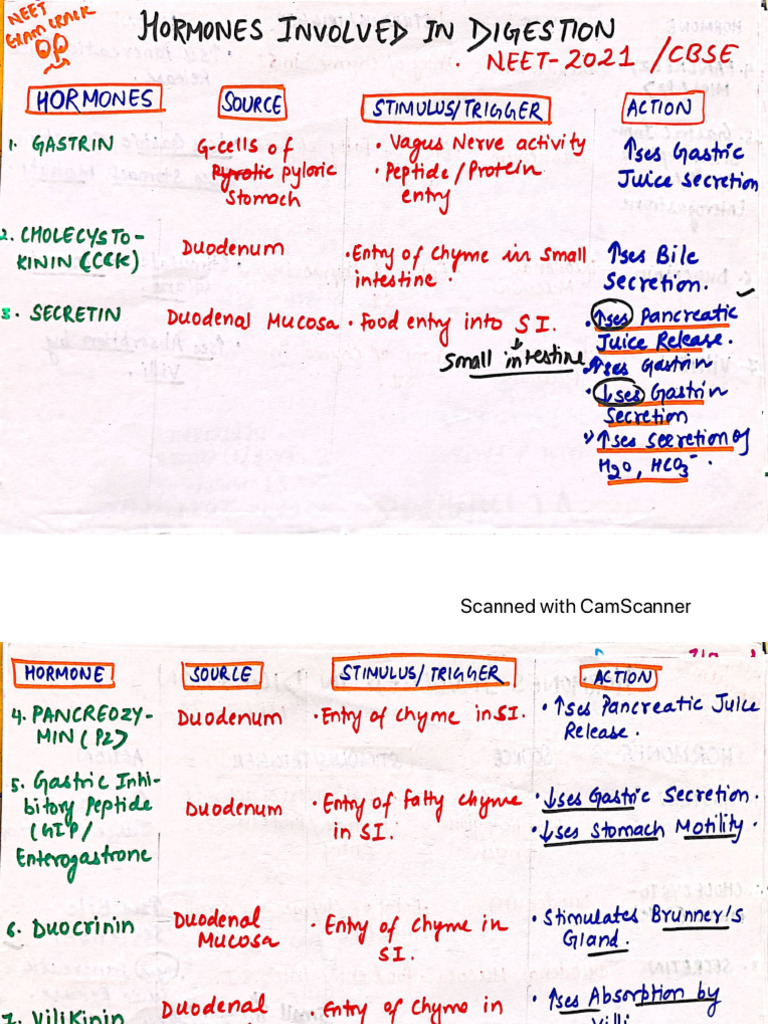 NEET
EXAM CRACK
HORMONES INVOLVED IN DIGESTION
NEET-2021 /CBSE
HORMONES SOURCE STIMULUS/TRIGGER ACTION
1. GASTRIN
G-cells of
Pyrotic pyloric
Stomach
• Vagus Nerve activity
• Peptide/Protein
entry
↑ses Gastric
Juice secretion
2. CHOLECYSTO-
KININ (CCK)
Duodenum
• Entry of chyme in small
intestine.
↑ses Bile
Secretion.
3. SECRETIN
Duodenal Mucosa
• Food entry into S I.
Small intestine
• ↑ses Pancreatic
Juice Release.
↑ses Gastrin
• ↓ses Gastrin
Secretion
↑ses secretion of
H2O, HCO3-.
Scanned with CamScanner
HORMONE SOURCE STIMULUS/TRIGGER ACTION
4. PANCREOZY-
MIN (PZ)
Duodenum
• Entry of chyme in SI.
• ↑ses Pancreatic Juice
Release.
5. Gastric Inhi-
bitory Peptide
(GIP/
Enterogastrone
Duodenum
• Entry of fatty chyme
in SI.
• ↓ses Gastric Secretion.
• ↓ses Stomach Motility.
6. Duocrinin
Duodenal
Mucosa
• Entry of chyme in
SI.
• Stimulates Brunner's
Gland.
7. Vilikinin
Duodenal
• Entry of chyme in
• ↑ses Absorption by
Villi